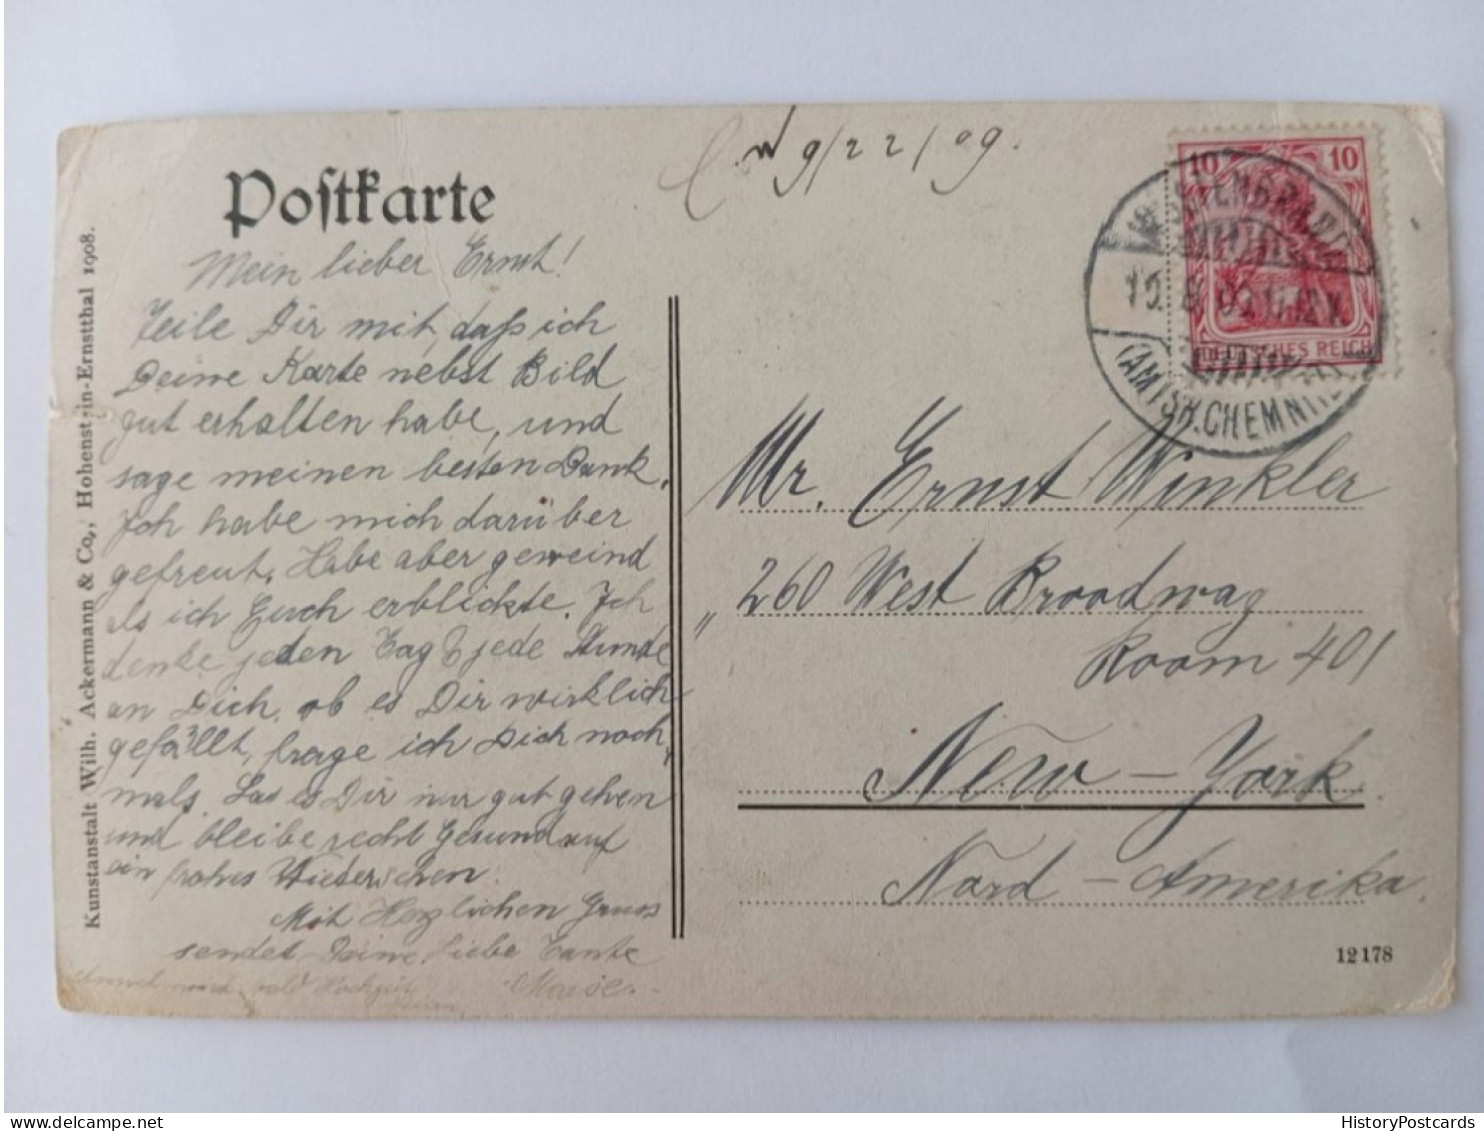 W 9/22/09.
Postkarte
10 10
DEUTSCHES REICH
WÜSTENBRAND
(AMTSH. CHEMNITZ)
Mein lieber Ernst!
Teile Dir mit, daß ich
Deine Karte nebst Bild
gut erhalten habe, und
sage meinen besten Dank.
Ich habe mich darüber
gefreut. Habe aber geweind
als ich Euch erblickte. Ich
denke jeden Tag & jede Stunde
an Dich, ob es Dir wirklich
gefällt, frage ich Dich noch
mals. Las es Dir nur gut gehen
und bleibe recht Gesund auf
ein frohes Wiedersehen.
Mit Herzlichen Gruss
sendet Deine Liebe Tante
Kunstanstalt Wilh. Ackermann & Co., Hohenstein-Ernstthal 1908.
Mr. Ernst Winkler
260 West Broadway
Room 401
New-York
Nord-Amerika.
12178
HistoryPostcards.com